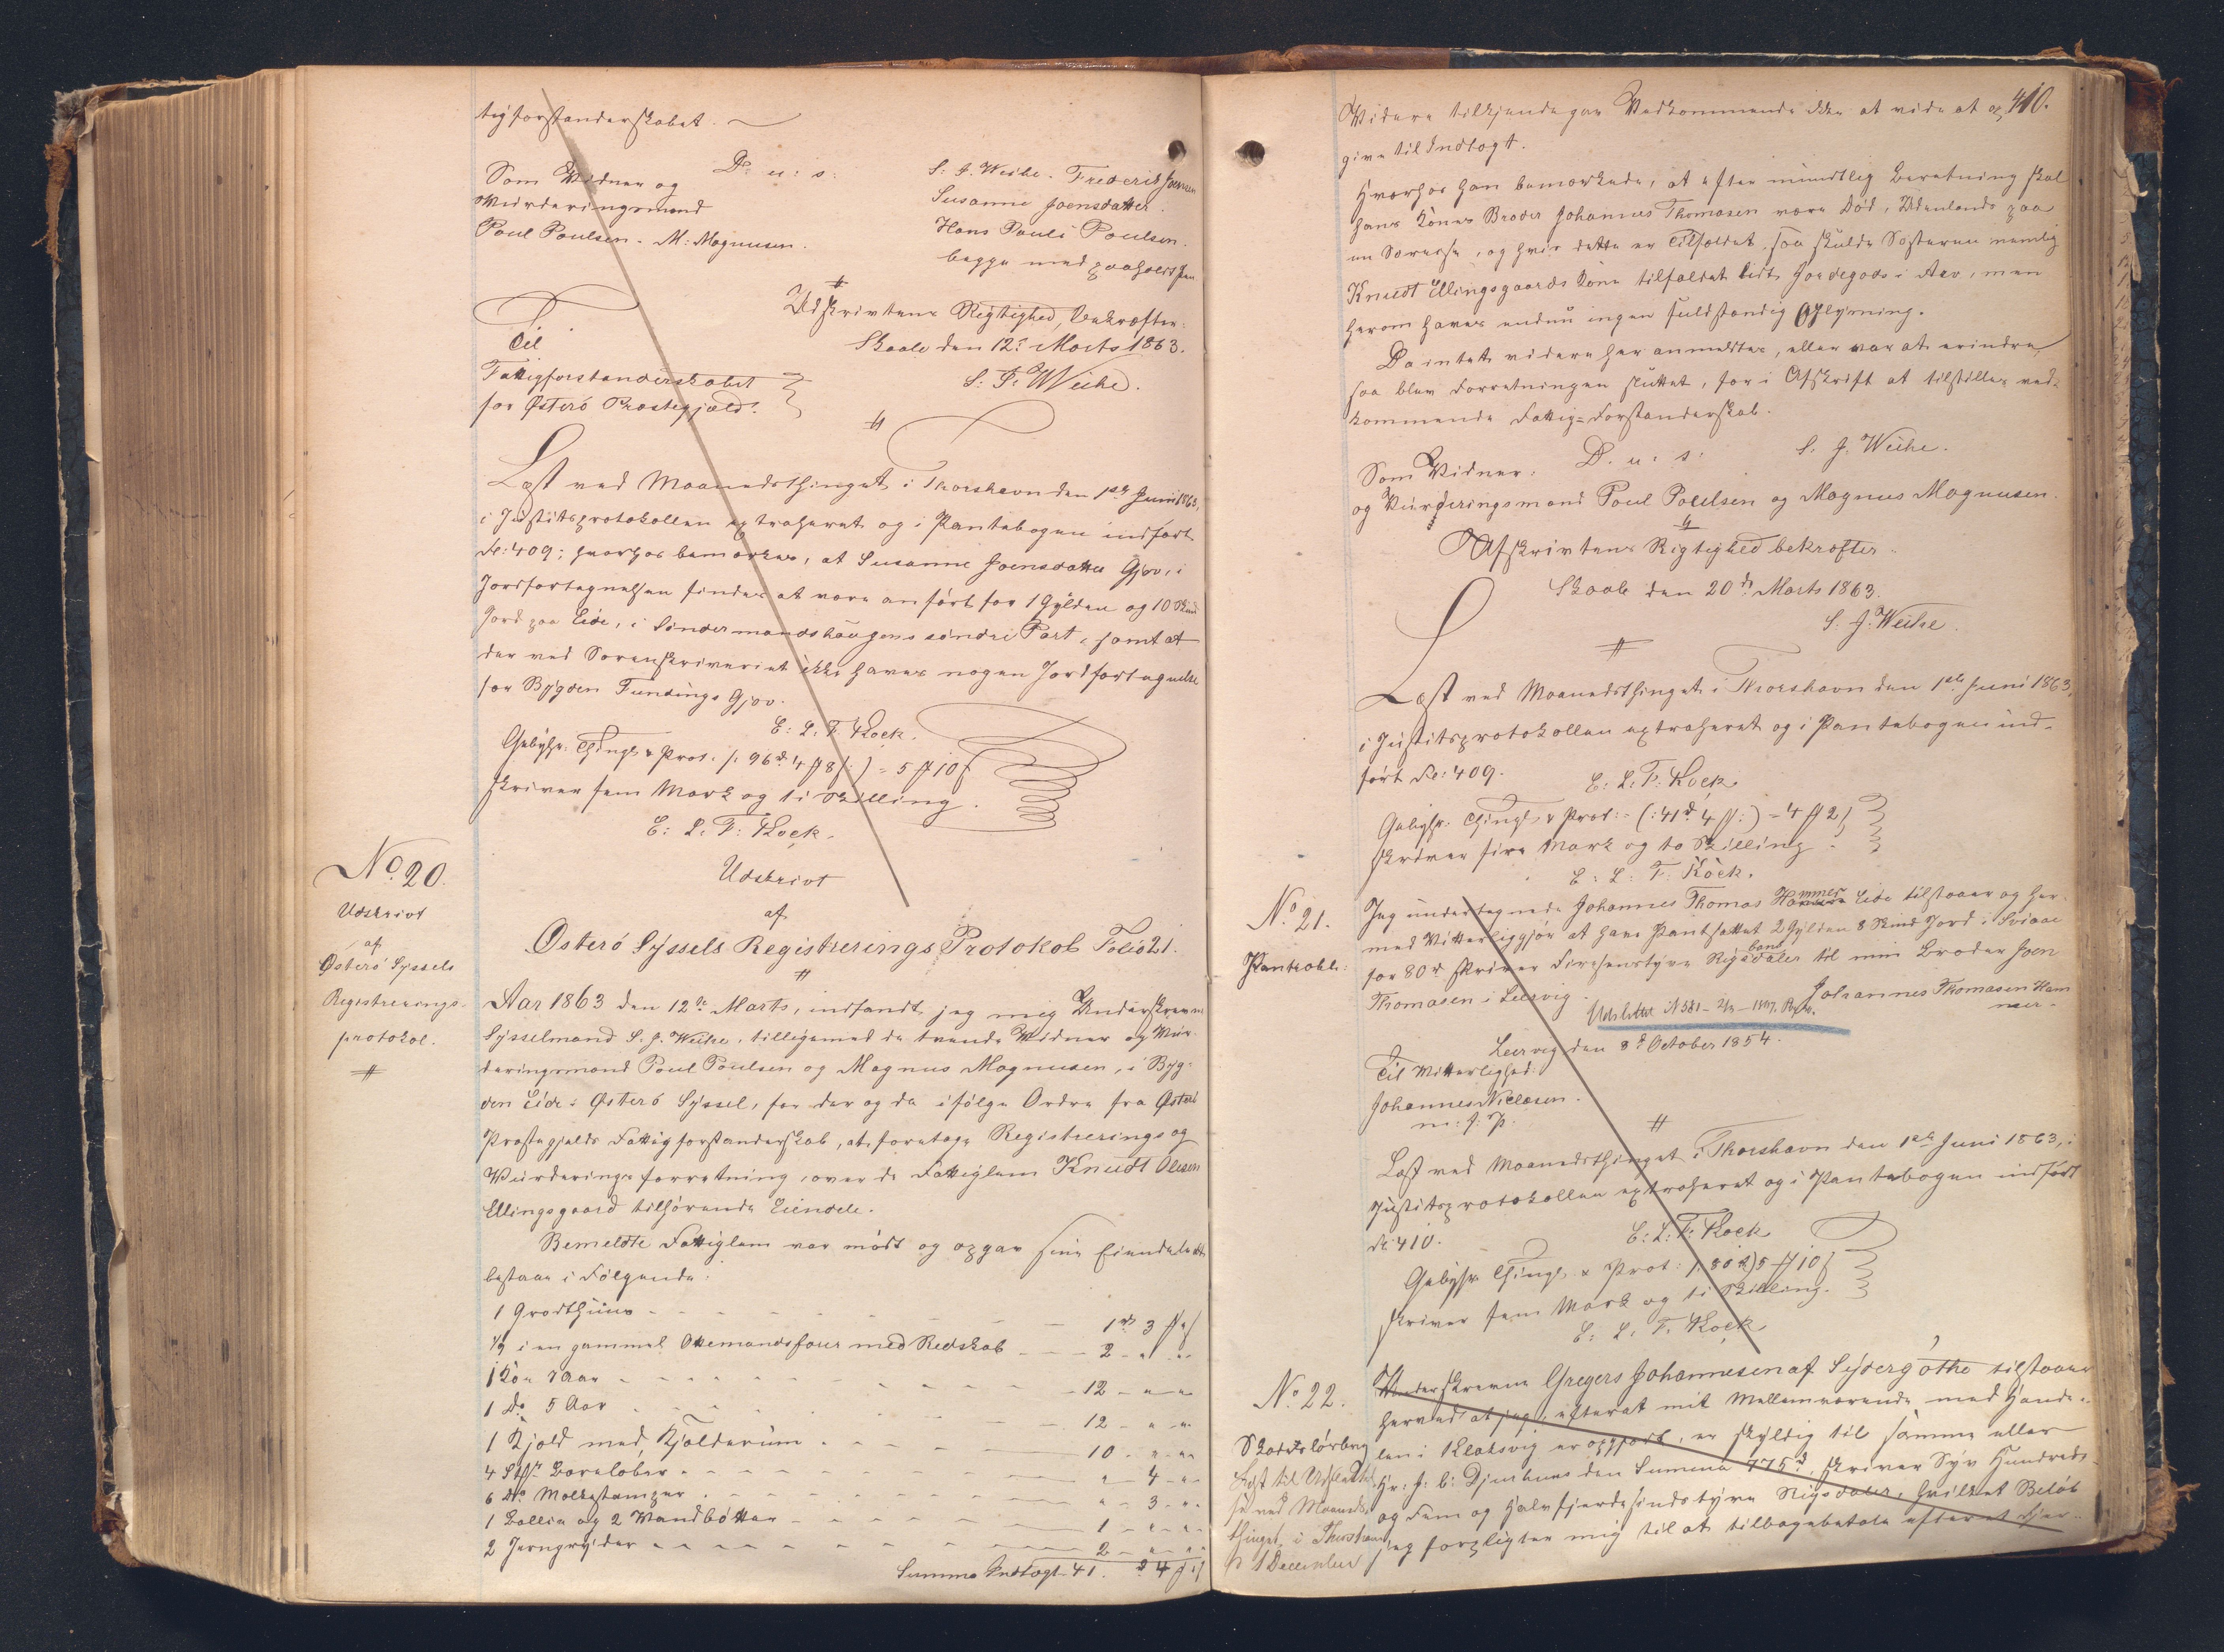 tigforstanderskabet.
D: u: s:
Som Vidner og
Vurderingsmænd
Poul Poulsen. M: Magnusen.
S: J. Weihe. Frederik Joensen
Susanne Joensdatter.
Hans Pauli Poulsen.
begge med paaholdt Pen
Udskrivtens Rigtighed, bekræfter.
Skaale den 12te Marts 1863.
S: J: Weihe.
Til
Fattigforstanderskabet
for Østerö Præstegjæld.
Læst ved Maanedsthinget i Thorshavn den 1ste Juni 1863,
i Justitsprotokollen extraheret og i Pantebogen indført
Fo: 409; hvorhos bemærkes, at Susanne Joensdatter Gjov, i
Jordfortegnelsen findes at være anført for 1 Gylden og 10 Skind
Jord paa Eide, i Söndermandshaugens søndre Part, samt at
der ved Sorenskriveriet ikke haves nogen Jordfortegnelse
for Bygden Fundings Gjov.
E: L: F: Kock.
Gebyhr. Thingl. & Prot. (: 96d. 4 # 8 ſ :) = 5 # 10 ſ
skriver fem Mark og ti Skilling.
E: L: F: Kock.
No 20.
Udskrivt
af
Østerö Syssels
Registrerings-
protokol.
Udskrivt
af
Østerö Syssels Registrerings Protokol Folio 21.
Aar 1863 den 12te Marts, indfandt jeg mig Underskrevne
Sysselmand S. J. Weihe, tilligemed de tvende Vidner og Vur-
deringsmænd Poul Poulsen og Magnus Magnusen, i Byg-
den Eide i Østerö Syssel, for der og da ifølge Ordre fra Østerö
Præstegjælds Fattigforstanderskab, at foretage Registrerings og
Vurderings forretning, over de Fattiglem Knudt Olesen
Ellingsgaard tilhörende Eiendele.
Bemeldte Fattiglem var mödt og opgav sine Eiendele at
bestaae i Følgende:
1 Grodthuus - - - 1 rd 3 # " ſ
1/2 i en gammel Ottemandsfarer med Redskab - - - 2 - " - "
1 Ko 8 Aar - - - 12 - " - "
1 Do 5 Aar - - - 12 - " - "
1 Kjold med Kjolderum - - - 10 - " - "
4 Stk - - - " - 4 - "
6 Do Melkestamper - - - " - 3 - "
1 Ballie og 2 Vandbøtter - - - 1 - " - "
2 Jerngryder - - - 2 - " - "
Summa Indtægt 41. d 4 # " ſ
410.
Videre tilkjendegav Vedkommende ikke at vide at op-
give til Indtægt.
Hvorhos han bemærkede, at efter mundtlig Beretning skal
hans Kones Broder Johannes Thomasen være Död, Udenlands paa
en Soreise, og hvis dette er Tilfældet, saa skulde Søsteren nemlig
Knudt Ellingsgaards Kone tilfaldet lidt Jordegods i Arv, men
herom haves endnu ingen fuldstændig Oplysning.
Da intet videre her anmeldtes, eller var at erindre,
saa blev Forretningen sluttet, for i Afskrift at tilstilles ved-
kommende Fattig-Forstanderskab.
D. u: s:
S. J. Weihe.
Som Vidner.
og Vurderingsmænd Poul Poulsen og Magnus Magnusen.
Afskrivtens Rigtighed bekræfter.
Skaale den 20de Marts 1863.
S. J. Weihe.
Læst ved Maanedsthinget i Thorshavn den 1ste Juni 1863,
i Justitsprotokollen extraheret og i Pantebogen ind-
ført Fo: 409.
E: L: F: Kock.
Gebyhr. Thingl. & Prot: (: 41d. 4 # :) = 4 # 2 ſ
skriver fire Mark og to Skilling.
E: L: F: Kock.
No 21.
Pantoobl:
Jeg undertegnede Johannes Thomas Hammer Eide tilstaaer og her-
med Vitterliggjör at have Pantsattet 2 Gylden 8 Skind Jord i Sviaae
for 80 rd skriver Firesenstyve Rigsbankdaler til min Broder Joen
Thomasen i Leervig.
Johannes Thomasen Ham
mer.
Udslettet
Leervig den 8de October 1854.
Til Vitterlighed:
Johannes Nielasen.
m. f. P.
Læst ved Maanedsthinget i Thorshavn den 1ste Juni 1863, i
Justitsprotokollen extraheret og i Pantebogen indført
Fo 410.
E: L: F: Kock
Gebyhr Thingl. & Prot: (: 80 d) 5 # 10 ſ
skriver fem Mark og ti Skilling.
E: L: F. Kock
No 22.
Underskrevne Gregers Johannesen af Sydergøthe tilstaaer
herved at jeg, efterat mit Mellemværende med Hande-
len i Klaksvig er opgjort, er skyldig til samme eller
Hr. J. C. Djurhuus den Summa 775 d, skriver Syv Hundrede
og Fem og halvfjerdesindstyve Rigsdaler, hvilket Beløb
jeg forpligter mig til at tilbagebetale efter et Fjer-
Skadeslösbrev
Læst til Udslettel
se ved Maaneds
thinget i Thorshavn
d 1 December